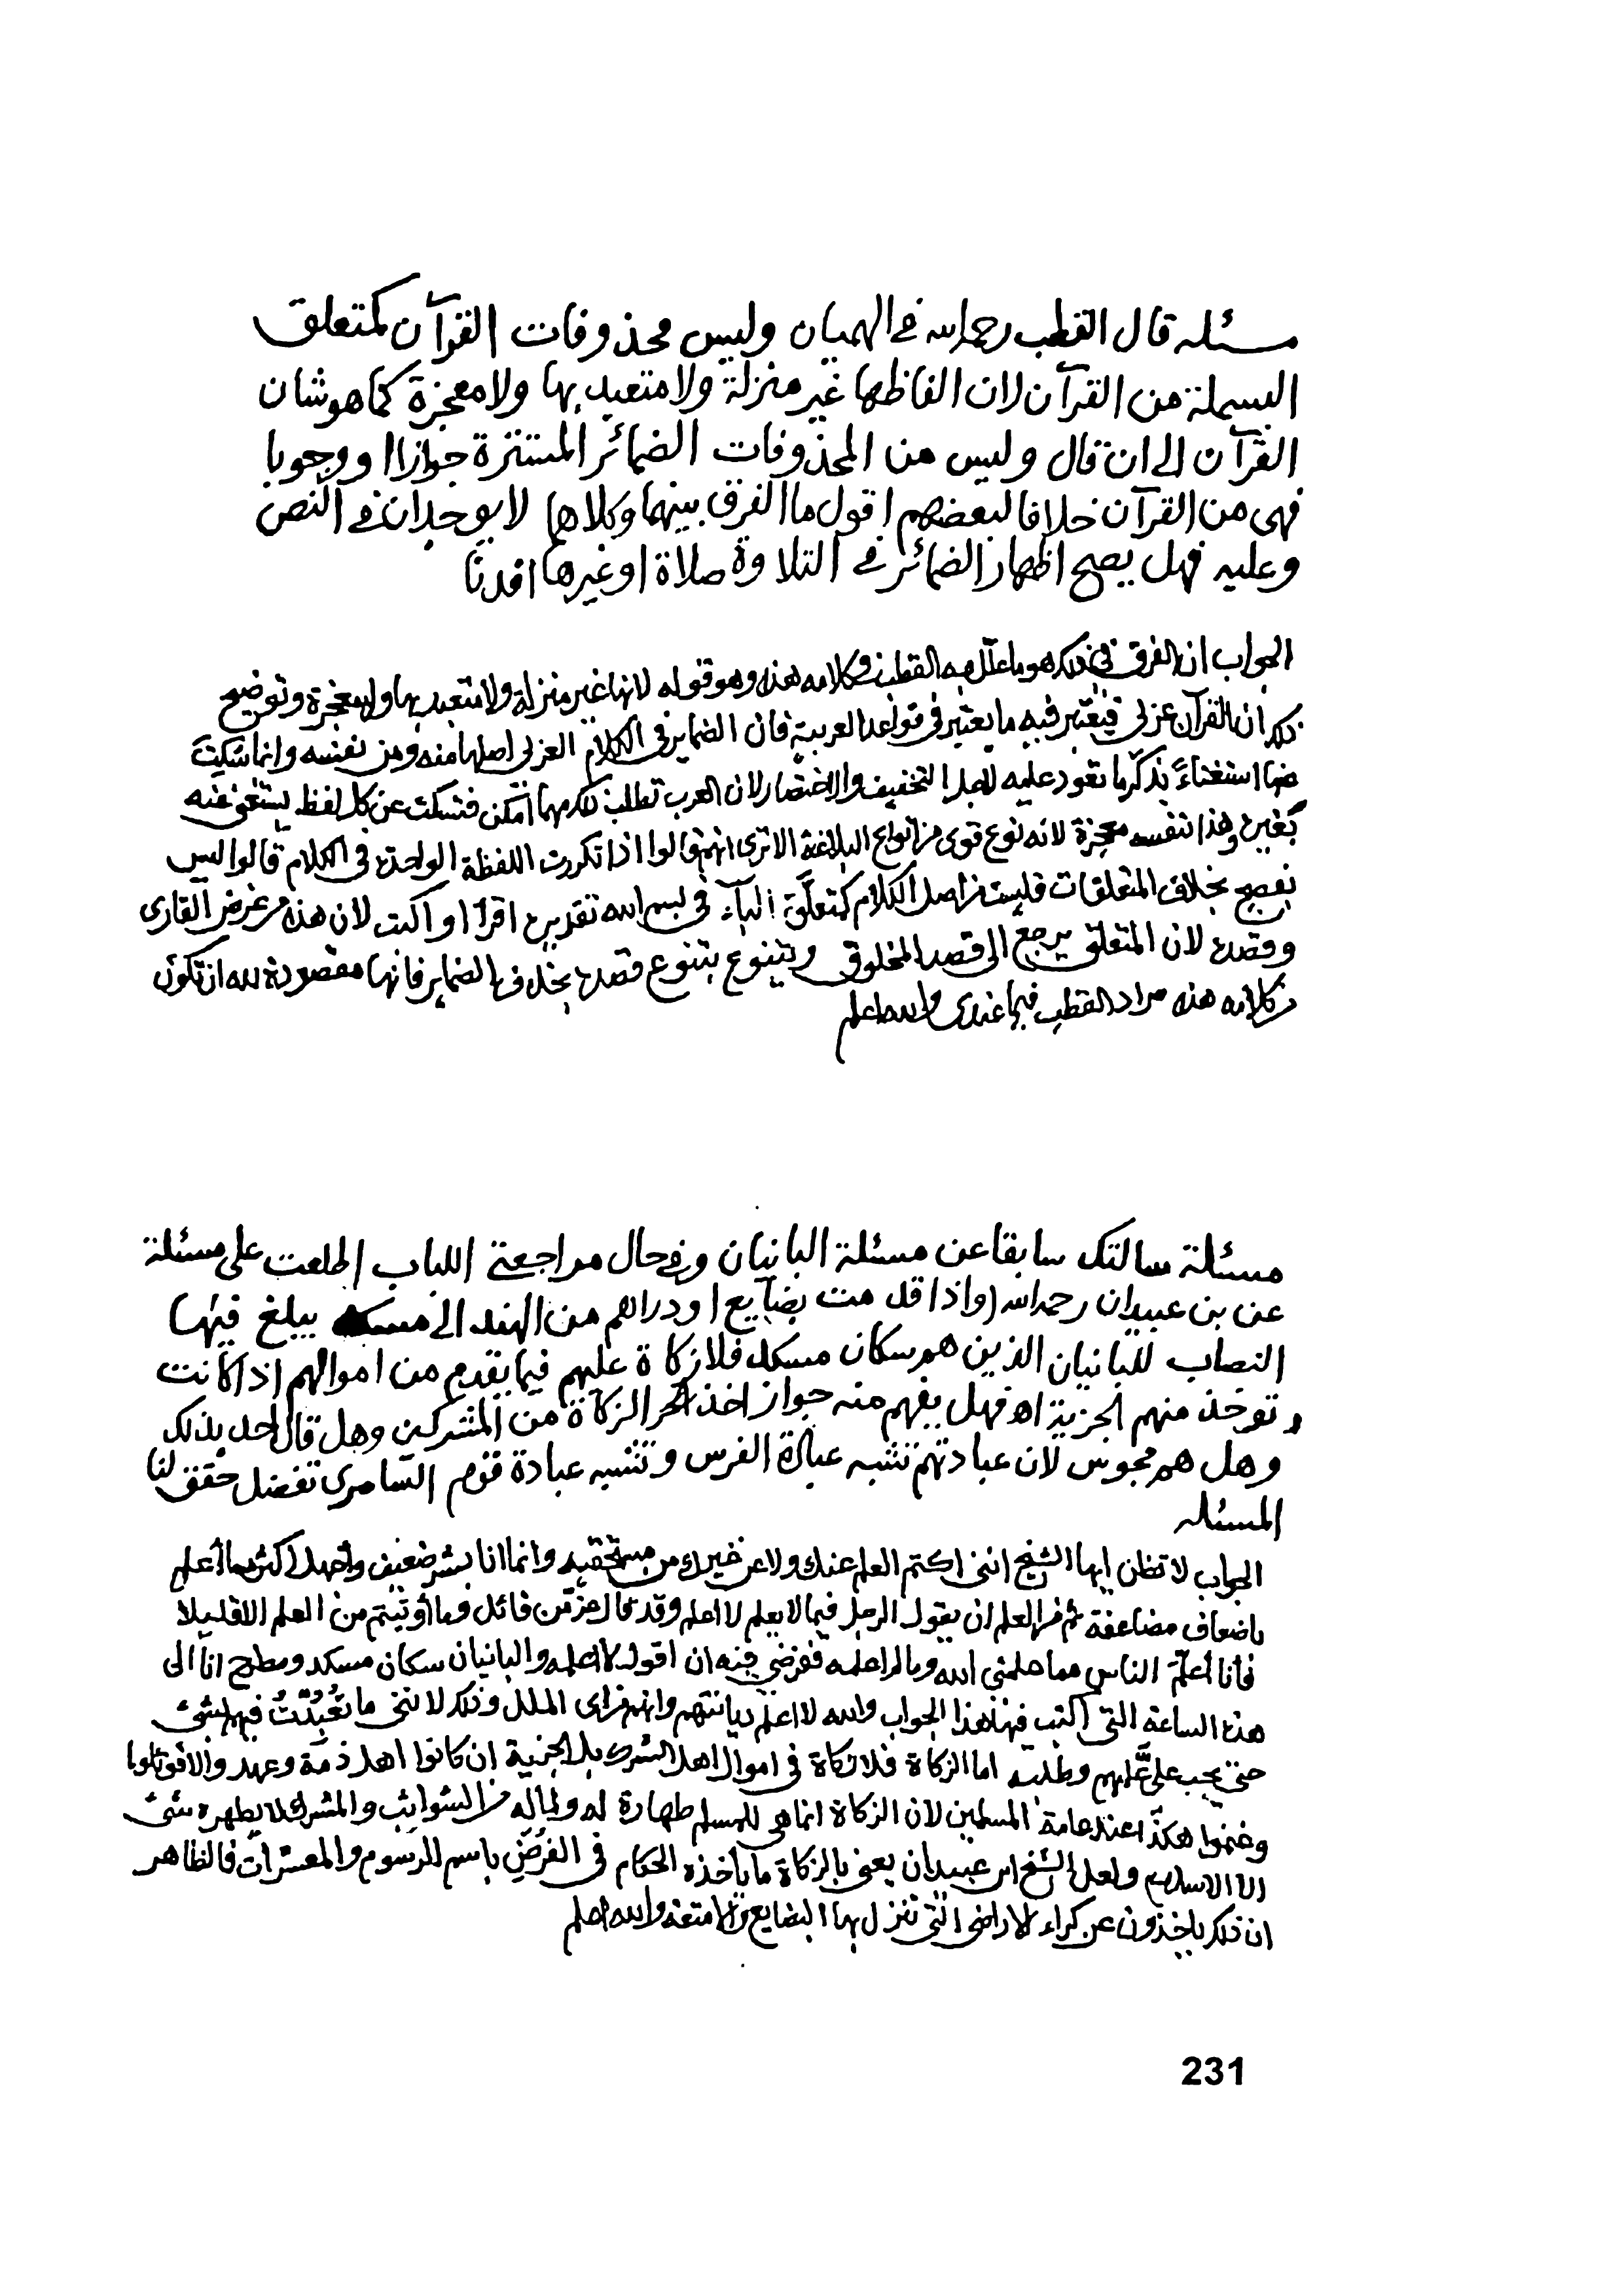 مسئله قال القطب رحمه الله في الهميان وليس محذوفات القرآن كمتعلق
البسملة من القرآن لان الفاظها غير منزلة ولا متعبد بها ولا معجزة كما هو شان
القرآن الى ان قال وليس من المحذوفات الضمائر المستترة جوازا او وجوبا
فهى من القرآن خلافا لبعضهم اقول ما الفرق بينهما وكلاهما لا يوجدان في النص
وعليه فهل يصح اظهار الضمائر في التلاوة صلاة او غيرها افدنا
الجواب ان الفرق في ذلك هو ما علل به القطب في كلامه هذا وهو قوله لانها غير منزلة ولا متعبد بها ولا معجزة وتوضيح
ذلك ان القرآن عربى فيعتبر فيه ما يعتبر في قواعد العربية فان الضماير في الكلام العربى اصلها منه ومن نفسه وانما سكت
عنها استغناءً بذكر ما تعود عليه لاجل التخفيف والاختصار لان العرب تطلب ذلك مهما امكن فتسكت عن كل لفظ يستغنى عنه
بغيره وهذا نفسه معجزة لانه نوع قوى من انواع البلاغة الا ترى انهم قالوا اذا تكررت اللفظة الواحدة في الكلام قالوا ليس
بفصيح بخلاف المتعلقات فليست من اصل الكلام كمتعلق الباء في بسم الله تقديره اقرأ او اكتب لان هذه من غرض القارى
وقصده لان المتعلق يرجع الى قصد المخلوق ويتنوع بتنوع قصده بخلاف الضماير فانها مقصودة لله ان تكون
من كلامه هذه مراد القطب فيما عندى والله اعلم
مسئلة سالتك سابقا عن مسئلة البانيان وفي حال مراجعتي اللباب اطلعت على مسئلة
عن بن عبيدان رحمه الله (واذا قدمت بضآيع او دراهم من الهند الى مسكد يبلغ فيها
النصاب للبانيان الذين هم سكان مسكد فلا زكاة عليهم فيما يقدم من اموالهم اذا كانت
توخذ منهم الجزية اه فهل يفهم منه جواز اخذ الزكاة من المشركين وهل قال احد بذلك
وهل هم مجوس لان عبادتهم تشبه عبادة الفرس وتشبه عبادة قوم السامرى تفضل حقق لنا
المسئله
الجواب لا تظن ايها الشيخ اننى اكتم العلم عنك ولا عن غيرك من مستحقيه وانما انا بشر ضعيف واجهل اكثر مما أعلم
باضعاف مضاعفة ثم من العلم ان يقول الرجل فيما لا يعلم لا اعلم وقد قال عز من قائل وما أوتيتم من العلم الا قليلا
فأنا أعلّم الناس مما علمنى الله وما لم اعلمه ففرضى فيه ان اقول لا اعلمه والبانيان سكان مسكد ومطرح انا الى
هذه الساعة التى اكتب فيها هذا الجواب والله لا اعلم ديانتهم وانهم من اى الملل وذلك لاننى ما تُعُبِّدْتُ فيهم بشئ
حتى يجب علي علمهم وطلبه اما الزكاة فلا زكاة في اموال اهل الشرك بل الجزية ان كانوا اهل ذمة وعهد والا قوتلوا
وغنموا هكذا عند عامة المسلمين لان الزكاة انما هى للمسلم طهارة له ولماله من الشوائب والمشرك لا يطهره شئ
الا الاسلام ولعل الشيخ ابن عبيدان يعنى بالزكاة ما ياخذه الحكام في الفُرَضِ باسم الرسوم والمعشرات فالظاهر
ان ذلك ياخذون عن كراء الاراضى التى تنزل بها البضايع والامتعة والله اعلم
231